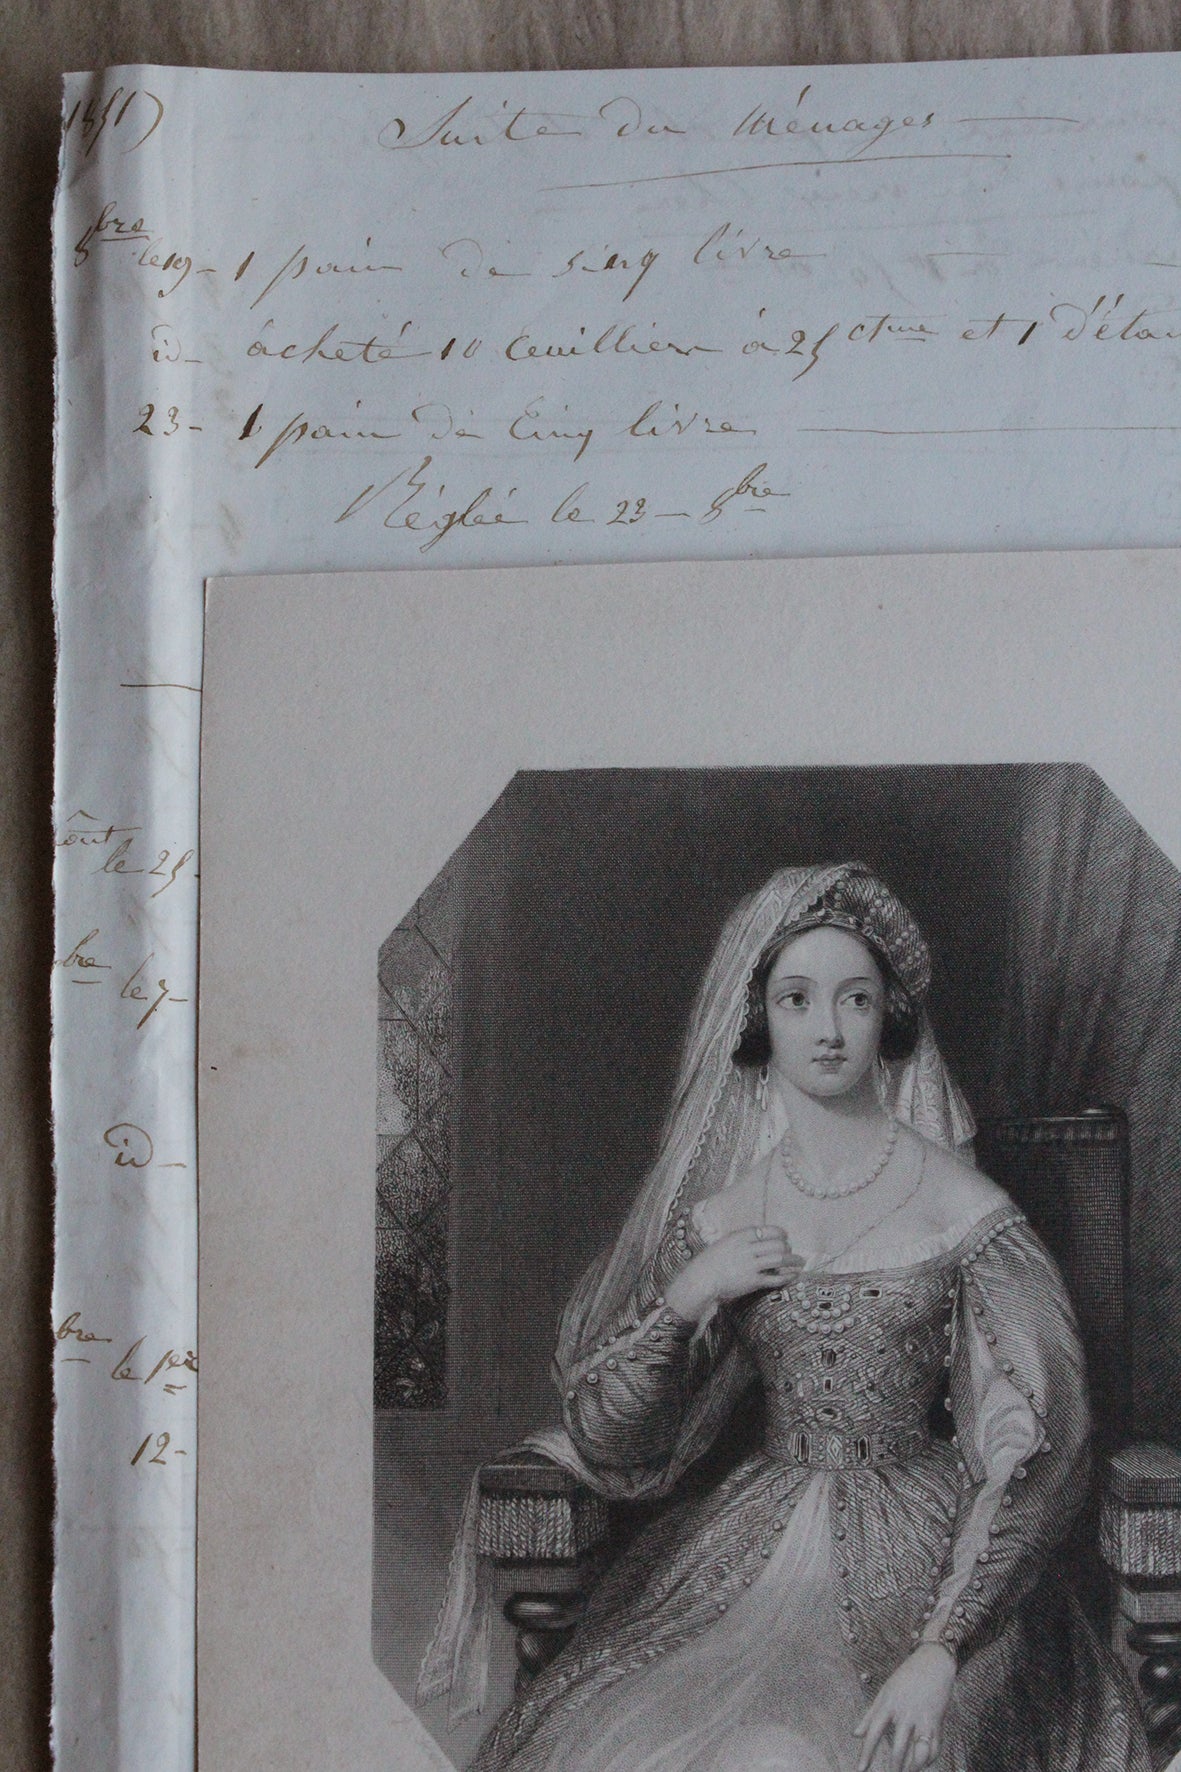 1851)
Suite du Ménages
8bre le 19 - 1 pain de sinq livre
id - ácheté 10 Ceuillier à 25 ctme et 1 d'étai
23 - 1 pain de Cinq livre
Réglée le 23 - 8bre
oût
le 25 -
bre
le 7 -
id -
bre
le 1er
12 -